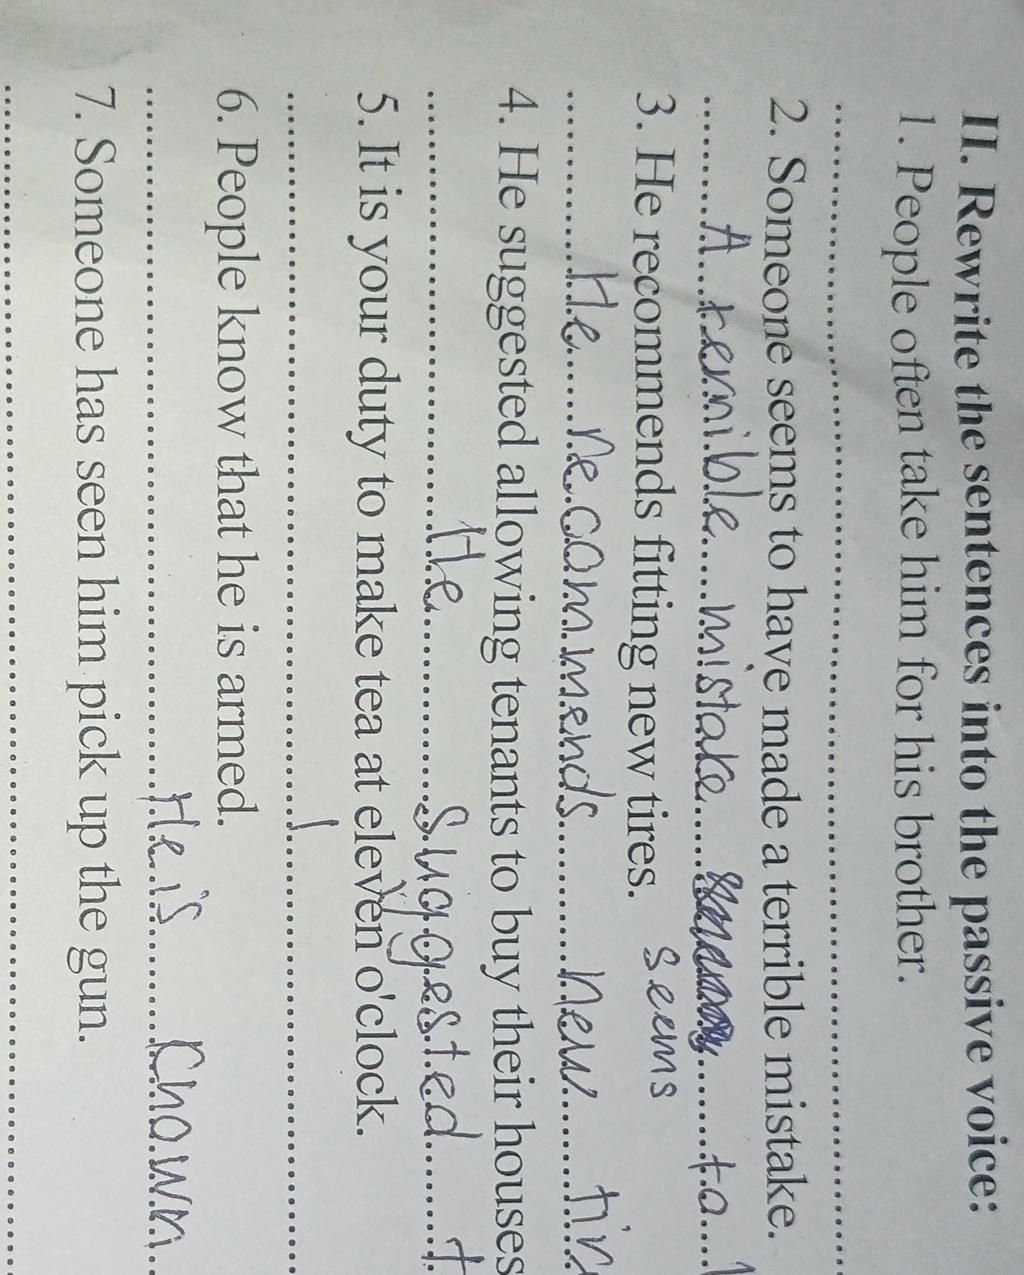 II. Rewrite the sentences into the passive voice:
1. People often take him for his brother.
2. Someone seems to have made a terrible mistake.
seems
A terrible mistake to
3. He recommends fitting new tires.
He recommends new
4. He suggested allowing tenants to buy their houses
He suggested
5. It is your duty to make tea at eleven o'clock.
6. People know that he is armed.
He is known
7. Someone has seen him pick up the gun.